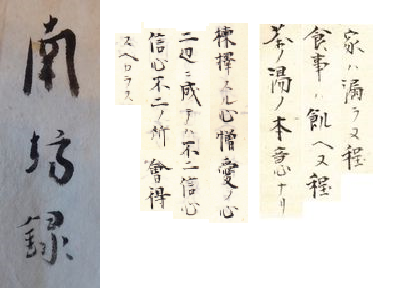 南坊録
家ハ漏ラヌ程
食事ハ飢ヘヌ程
茶ノ湯ノ本意ナリ
揀擇スル心憎愛ノ心
二辺ニ成テハ不二信心
信心不二ノ所會得
スヘカラス